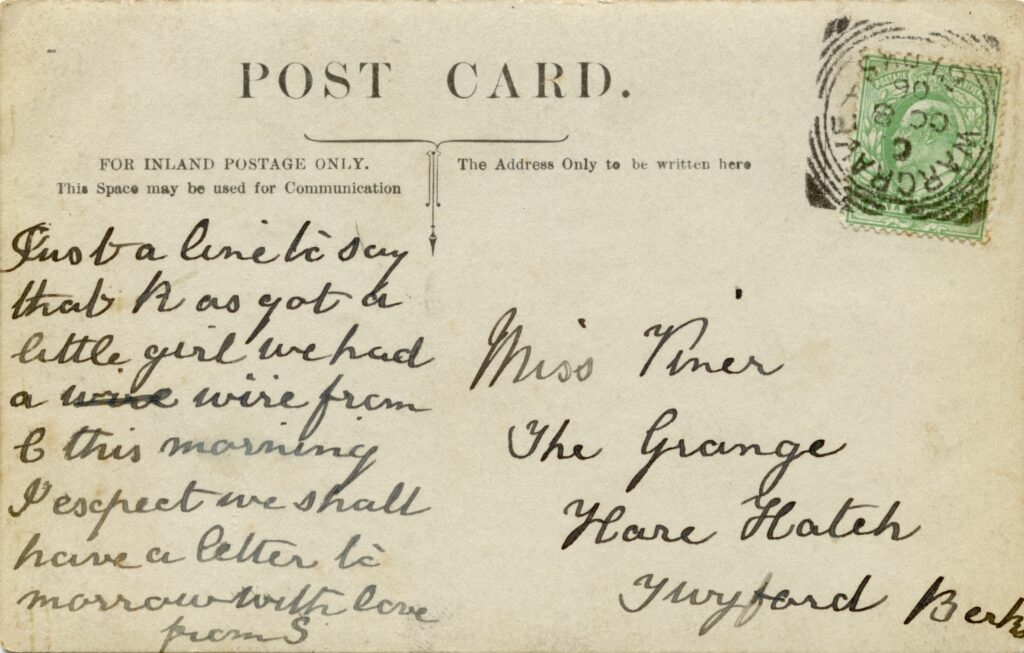 POST CARD.
FOR INLAND POSTAGE ONLY.
This Space may be used for Communication
The Address Only to be written here
WARGRAVE
C
OC 8
06
Just a line to say
that K as got a
little girl we had
a wire wire from
C this morning
I expect we shall
have a letter to
morrow with love
from S
Miss Piner
The Grange
Hare Hatch
Twyford Berks